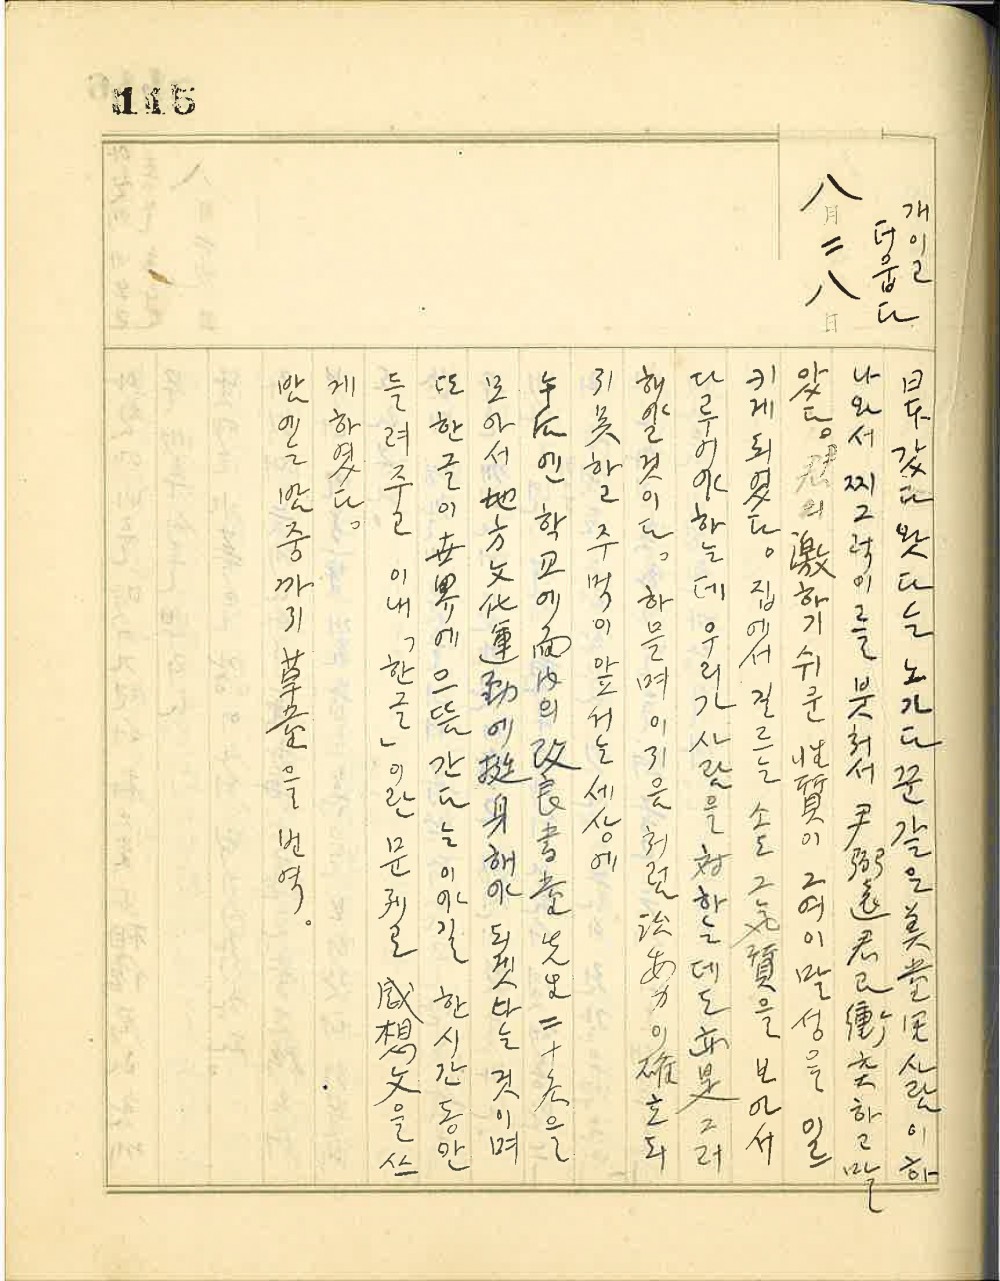 115
개이고
더웁다
八月二八日
日本 갔다 왓다는 노가다꾼 같은 美堂里 사람이 하
나와서 찌그럭이를 붓처서 尹弼遠君로 衝突하고 말
았다。君의 激하기 쉬운 性質이 그여이 말성을 일으
키게 되였다。집에서 길르는 소도 그 気質을 보아서
다루어야하는데 우리가 사람을 対하는데도 亦是 그러
해야할 것이다。하믈며 이지음 처럼 이 確호되
지 못하고 주먹이 앞서는 세상에
午后엔 학교에 面内의 改良書堂 先生 二十名을
모아서 地方文化運動에 挺身해야 되겟다는 것이며
또 한글이 世界에 으뜸 간다는 이야길 한시간 동안
들려주고 이내「한글」이란 문제로 感想文을 쓰
게 하였다。
밤엔 밤중까지 草堂을 번역。